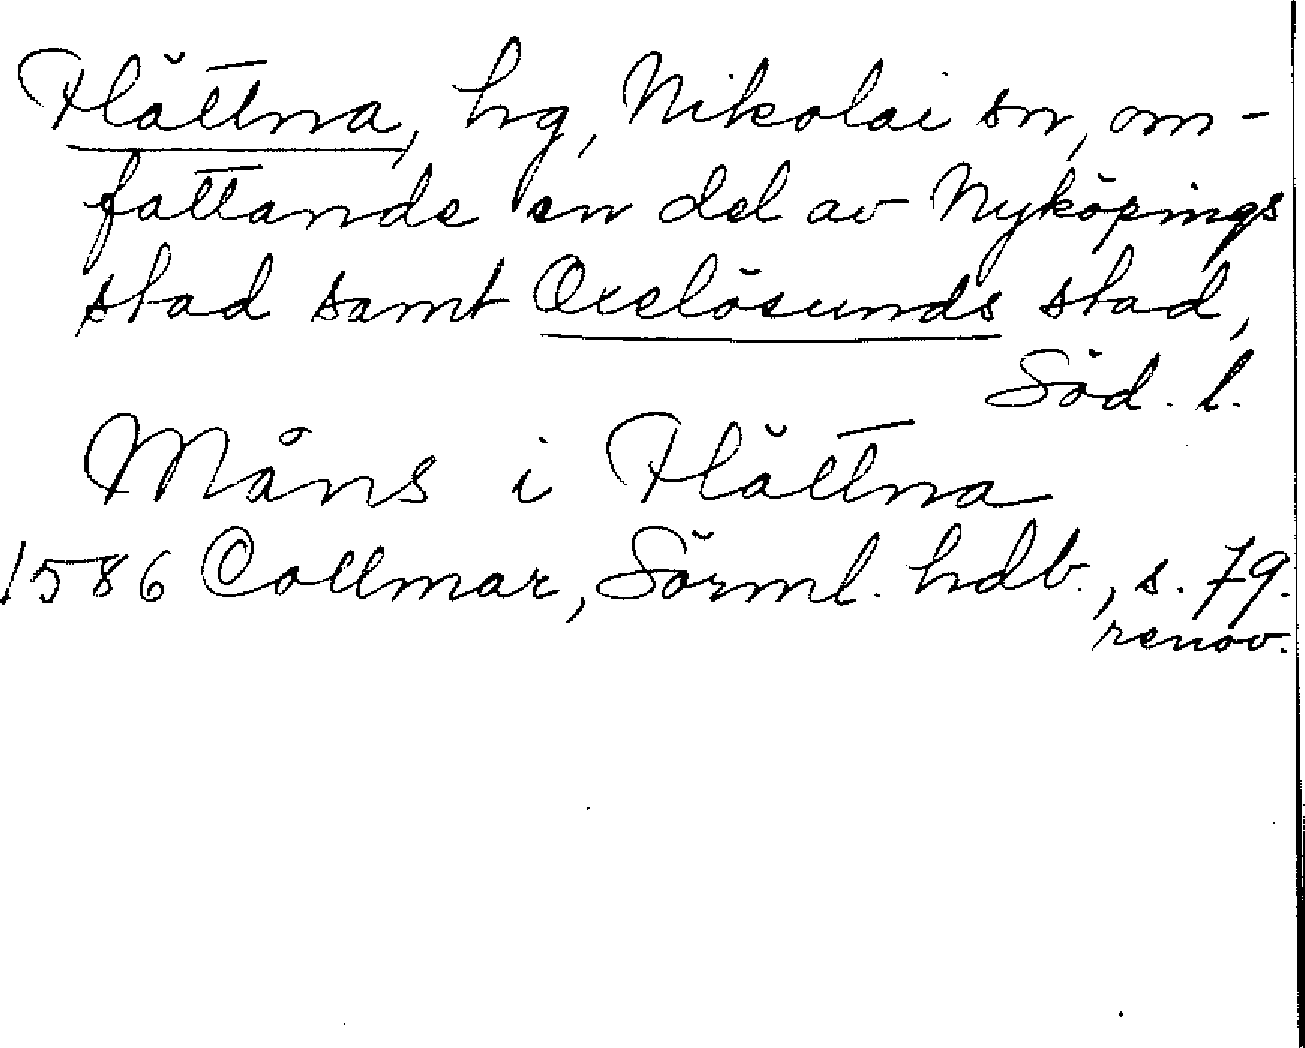 Flättna, hg, Nikolai sn, om-
fattande en del av Nyköpings
stad samt Oxelösunds stad,
Söd. l.
Måns i Flättna
1586 Collmar, Sörml. hdb., s. 79.
renov.